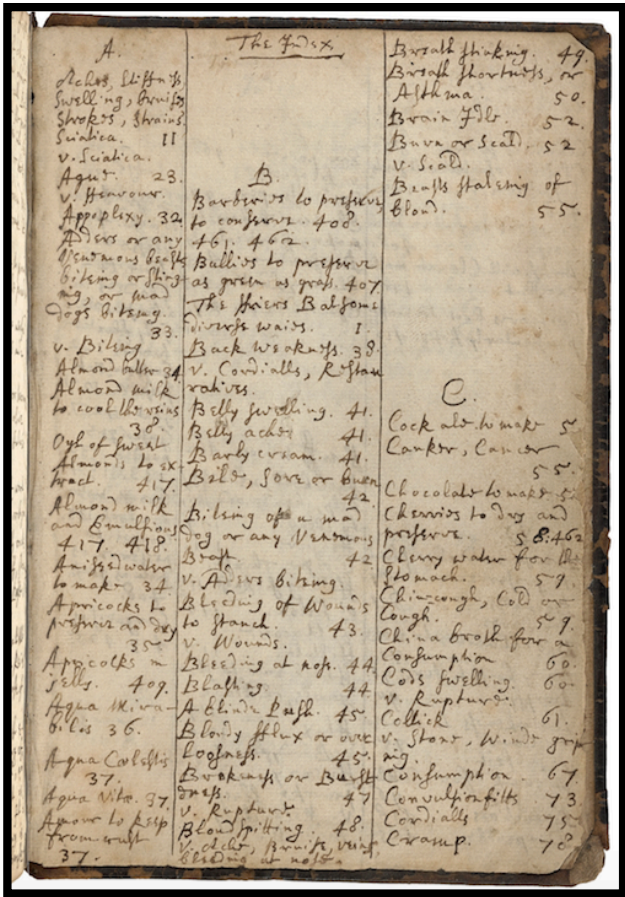 The Index
A.
Aches, Stiffness
Swelling, bruises
Strokes, Strains
Sciatica. 11
v. Sciatica.
Ague. 23.
v. Feavour.
Appoplexy. 32
Adders or any
Venemous beasts
biteing or sting-
ing, or mad
dogs biteing.
33.
v. Biteing
Almond butter 34
Almond milk
to cool the veins
38.
Oyl of sweat
Almonds to ex-
tract. 417.
Almond milk
and Emulsions
417. 418.
Aniseed water
to make 34.
Apricocks to
preserve and dry
35
Appicocks in
jelly. 409.
Aqua Mira-
bilis 36.
Aqua Coelestis
37.
Aqua Vitæ. 37.
Amour to keep
from rust
37.
B.
Barberies to preserve,
to conserve. 408.
461. 462.
Bullies to preserve
as green as grass. 407
The Friers Balsome
diverse waies. 1.
Back weakness. 38.
v. Cordialls, Restau
ratives.
Belly swelling. 41.
Belly aches 41.
Barly cream. 41.
Bile, sore or burn
42
Biteing of a mad
dog or any Venemous
Beast. 42
v. Adders biteing.
Bleeding of Wounds
to stanch. 43.
v. Wounds.
Bleeding at nose. 44
Blasting. 44
A blinde Push. 45
Bloudy flux or over
loosness. 45.
Brokeness or Burst
dness. 47
v. Rupture
Bloud spitting. 48.
v. Ache, Bruise, veins,
bleeding at nose.
Breath stinking. 49.
Breath shortness, or
Asthma. 50.
Brain Idle. 52.
Burn or Scald. 52
v. Scald.
Beasts staleing of
bloud. 55.
C.
Cock ale to make 5
Canker, Cancer
55.
Chocolate to make 5
Cherries to dry and
preserve. 58. 462
Cherry water for the
stomach. 59.
Chincough, Cold or
Cough. 59.
China broth for a
Consumption 60.
Cods swelling. 60
v. Rupture.
Collick 61.
v. Stone, Winde grip
ing.
Consumption. 67.
Convulsion fitts 73
Cordialls 75
Cramp. 78